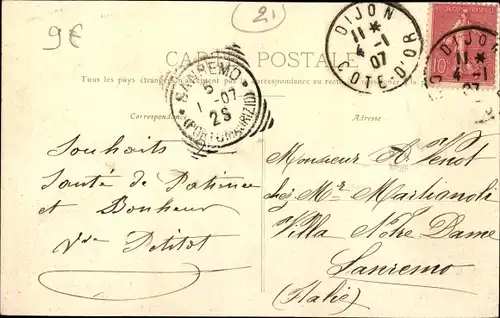 9€
21
CARTE POSTALE
Tous les pays étrangers n'acceptent pas la correspondance au recto
Correspondance
Adresse
DIJON
11 *
4 -1
07
COTE-D'OR
10
DIJON
11 *
4 -1
07
SANREMO
5
1 -07
2S
(PORTO MAURIZIO)
Souhaits
Santé de Patience
et Bonheur
Vve Petitot
Monsieur A. Venot
chez Mr Martignoli
Villa Notre Dame
Sanremo
(Italie)